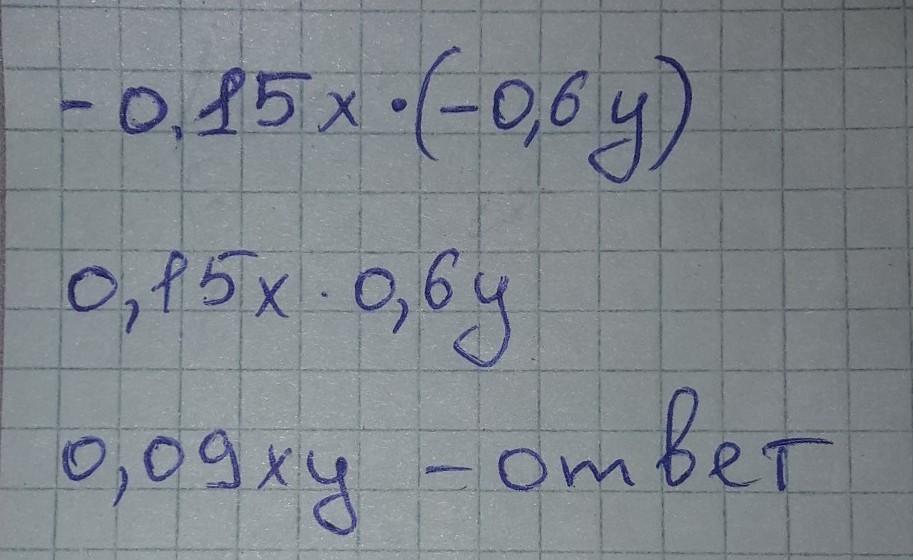 -0,15x·(-0,6y)
0,15x·0,6y
0,09xy - ответ